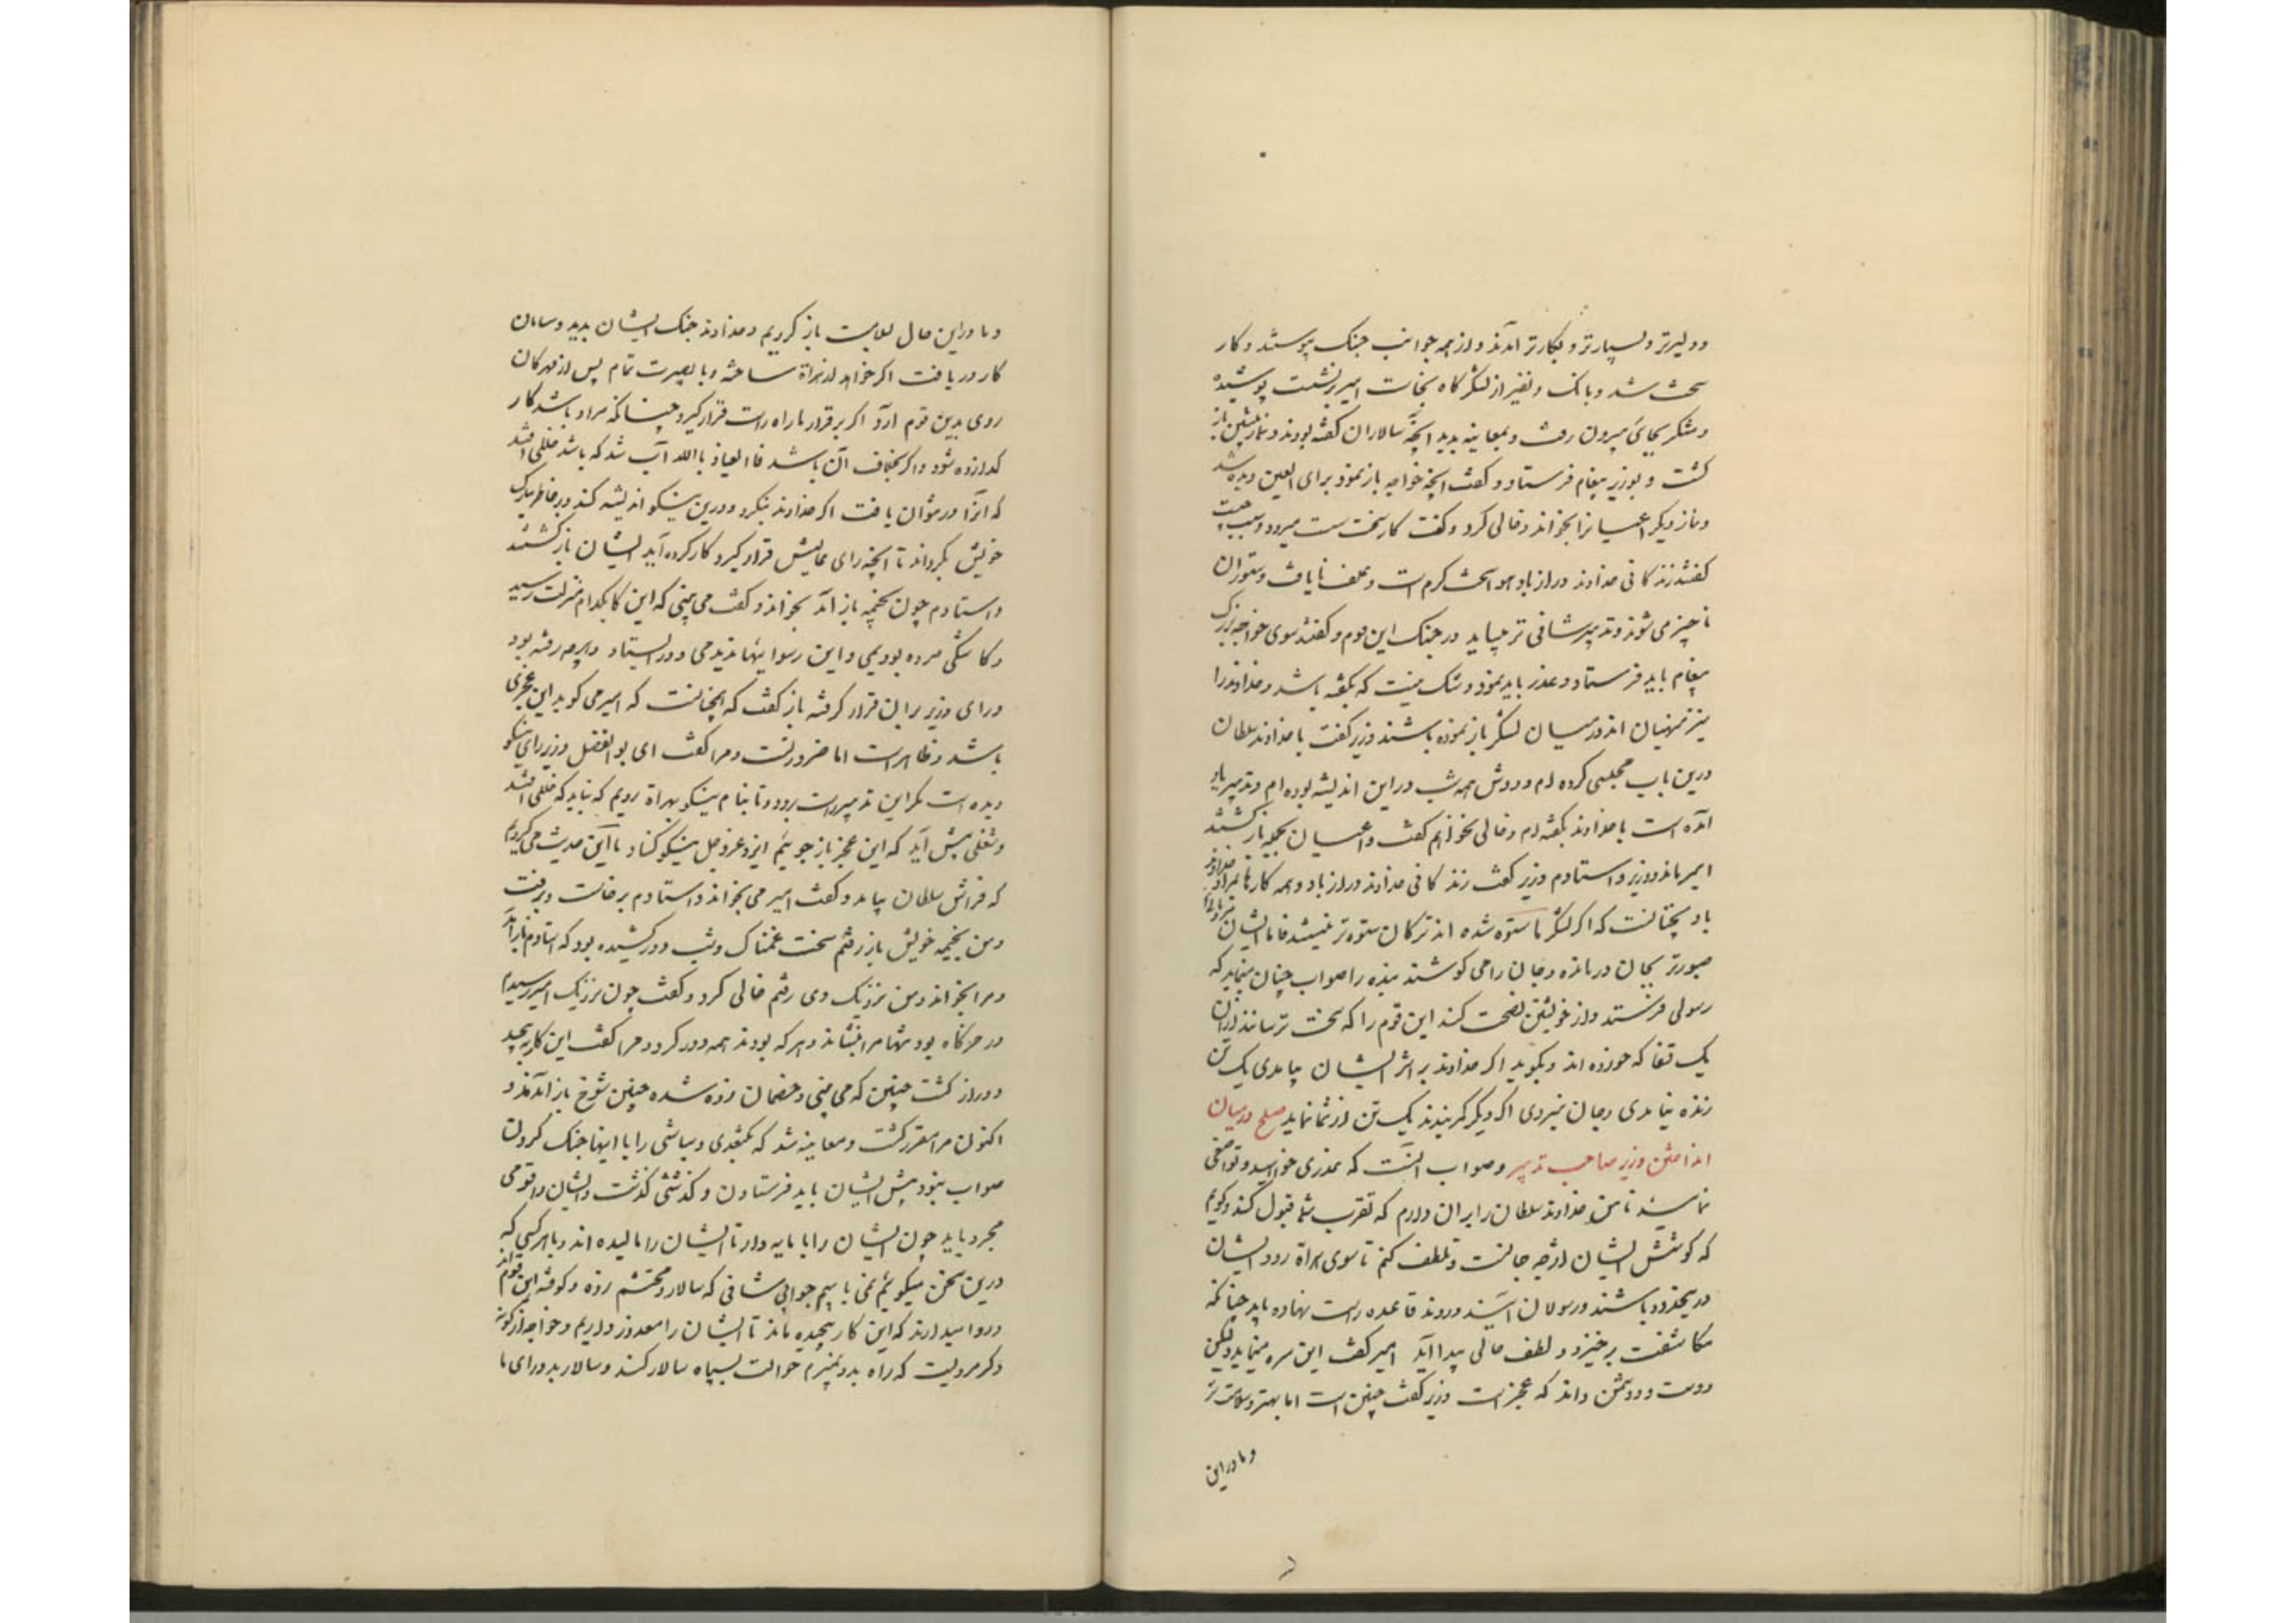 و دلیرتر و بسیارتر و بکارتر آمدند و از همه جوانب جنک پیوستند و کار
سخت شد و بانک و نفیر از لشکرگاه بخاست امیر برنشست پوشیده
و متنکر بجای بیرون رفت و بمعاینه بدید آنچه سالاران کفته بودند و نماز پیشین باز
کشت و بوزیر پیغام فرستاد و کفت آنچه خواجه باز نمود برای العین دیده شد
و نماز دیکر اعیانرا بخواند و خالی کرد و کفت کار سخت سست میرود و سبب چیست
کفتند زندکانی خداوند دراز باد هوا سخت کرم است و علف نایافت و ستوران
ناچیز می شوند و تدبیر شافی تر میباید در جنک این قوم و کفتند سوی خواجه بزرک
پیغام باید فرستاد و عذر باید نمود و شک نیست که بکفته باشد و خداوند را
نیز منهیان اند در میان لشکر باز نموده باشند وزیر کفت با خداوند سلطان
درین باب مجلسی کرده ام و دوش همه شب در این اندیشه بوده ام و تدبیر یاد
آمده است با خداوند بکفته ام و خالی بخواهم کفت و اعیان بجمله باز کشتند
امیر ماند و وزیر و استادم وزیر کفت زندکانی خداوند دراز باد و همه کارها بمراد خداوند
باد نچنانست که اکر لشکر ما ستوه شده اند ترکان ستوه تر نیستند فاما ایشان
صبورتر بجان درمانده و جان را می کوشند بنده را صواب چنان مینماید که
رسولی فرستد و از خویشتن نصیحت کند این قوم را که سخت ترسانند از آن
یک قفا که خورده اند و بکوید اکر خداوند بر اثر ایشان بیامدی یک تن
زنده نیامدی و جان نبردی اکر دیکر کمر بندند یک تن از شما نماید صلح در میان
انداختن وزیر صاحب تدبیر و صواب آنست که عذری خواهید و تواضعی
نمایید تا من خداوند سلطان را بر آن دارم که تقرب شما قبول کند و کویم
که کوشش ایشان از بیم جانست و تلطف کنم تا سوی هراة رود ایشان
درین حدود باشند و رسولان آیند و روند قاعده راست نهاده باید چنانکه
مکاشفت برخیزد و لطف حالی پیدا آید امیر کفت این سره مینماید ولیکن
دوست و دشمن داند که عجز است وزیر کفت چنین است اما بهتر و سلامت تر
و ما در این
و ما در این حال سلامت باز کردیم و خداوند جنک ایشان بدید و سامان
کار دریافت اکر خواهد از هراة ساخته و با بصیرت تمام پس از مهرکان
روی بدین قوم آرد اکر بر قرار ما راه راست قرار کیرد چنانکه مراد باشد کار
کدارده شود و اکر بخلاف آن باشد فالعیاذ بالله آب شد که باشد خللی افتد
که آنرا در نتوان یافت اکر خداوند بنکرد و درین نیکو اندیشه کند و بر خاطر مبارک
خویش بکرداند تا آنچه رای عالیش قرار کیرد کار کرده آید ایشان باز کشتند
و استادم چون بخیمه باز آمد بخواند و کفت می بینی که این کار بکدام منزلت رسید
و کاشکی مرده بودیمی و این رسواییها ندیدمی و در ایستاد و هر چه رفته بود
و رای وزیر بر آن قرار کرفته باز کفت که همچنانست که امیر می کوید این عجزی
باشد و ظاهر است اما ضرورتست و مرا کفت ای بوالفضل وزیر رای نیکو
دیده است مکر این تدبیر راست برود و تا بنام نیکو بهراة رویم که نباید که خللی افتد
و شغلی پیش آید که این عجز باز جوییم ایزد عز و جل نیکو کناد ما این حدیث می کردیم
که فراش سلطان بیامد و کفت امیر می بخواند و استادم برخاست و برفت
و من بخیمه خویش باز رفتم سخت غمناک و شب دور کشیده بود که استادم باز آمد
و مرا بخواند و من نزدیک وی رفتم خالی کرد و کفت چون نزدیک امیر رسیدم
در خرکاه بود تنها مرا بنشاند و هر که بودند همه دور کرد و مرا کفت این کار بپیچید
و دراز کشت چنین که می بینی و خصمان زده شده چنین شوخ باز آمدند و
اکنون مرا مقرر کشت و معاینه شد که بکتغدی و سباشی را با اینها جنک کردن
صواب نبود پیش ایشان باید فرستادن و کذشتنی کذشت و ایشان را قومی
مجرد باید چون ایشان را با مایه دار تا ایشان را مالیده اند و با هر کسی که
درین سخن میکوییم نمی یابیم جوابی شافی که سالار محتشم زده و کوفته این قوم اند
و روا میدارند که این کار پیچیده ماند تا ایشان را معذور داریم و خواجه از کونه
دکر مردیست که راه بدو نمیبرم حوالت بسپاه سالار کند و سالار بد و رای ما